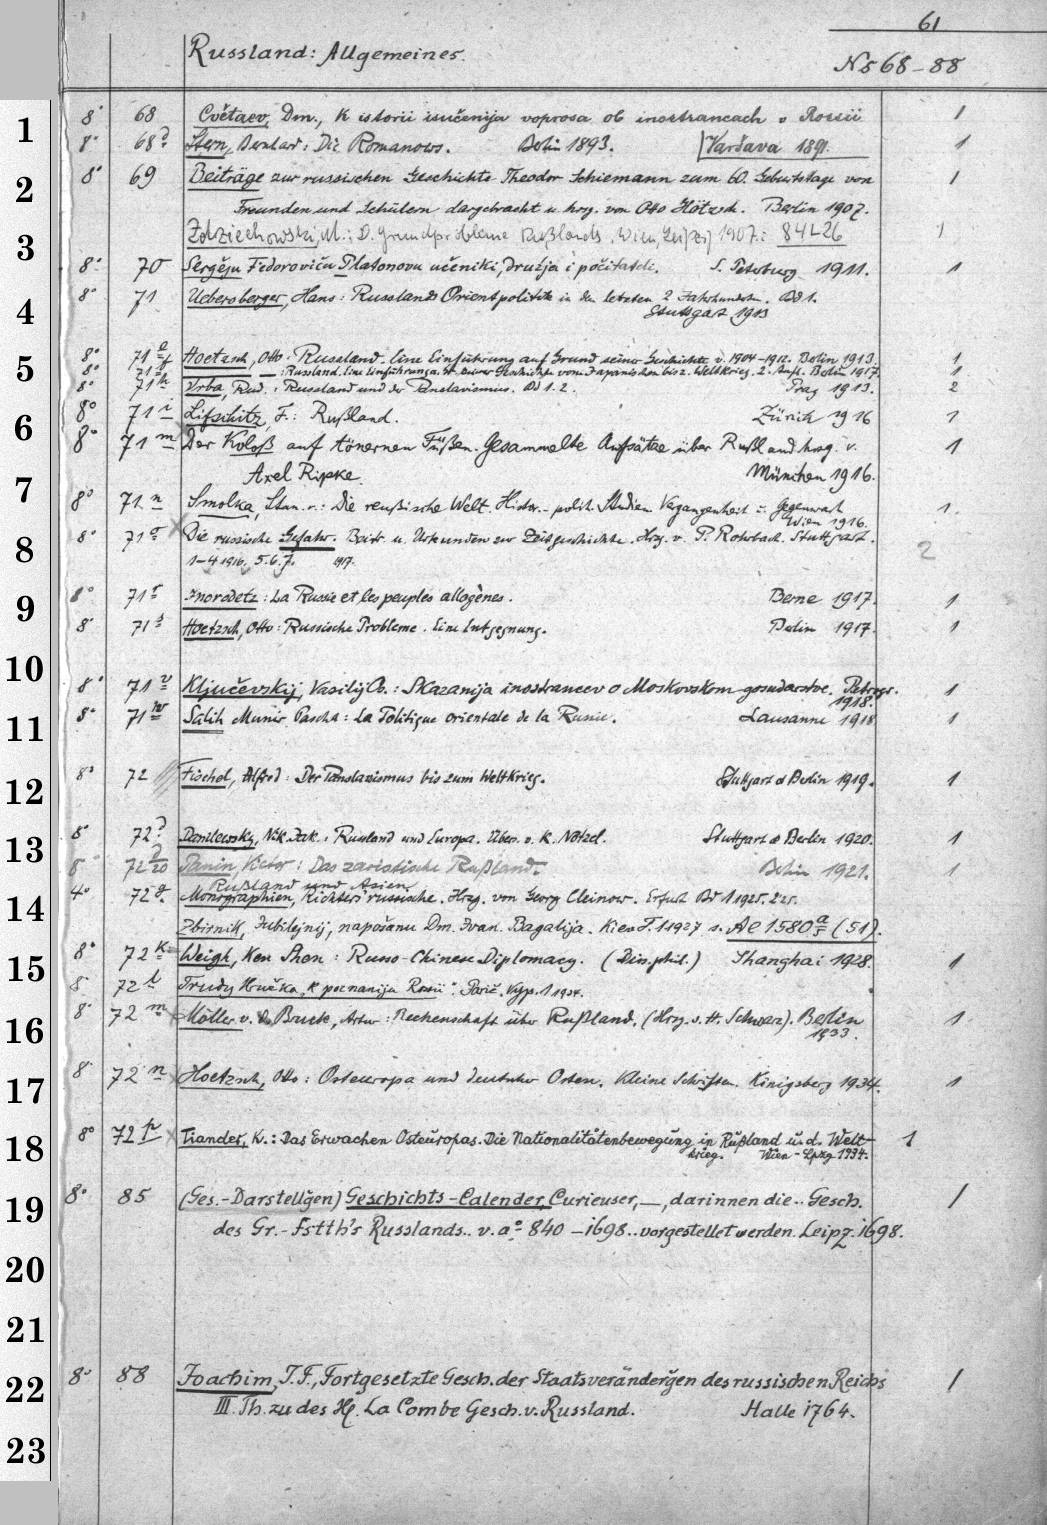 61
Russland: Allgemeines.
No 68-88
1
8° 68 Cvětaev, Dm., K istorii izučenija voprosa ob inostrancach v Rossii 1
8° 68 Stern, Bernhard: Die Romanows. Berlin 1893. Varšava 1891. 1
2
8° 69 Beiträge zur russischen Geschichte Theodor Schiemann zum 60. Geburtstage von 1
Freunden und Schülern dargebracht u. hrsg. von Otto Hötzsch. Berlin 1907.
3
Zdziechowski, M.: D. Grundprobleme Rußlands. Wien, Leipzig 1907.: 84L26 1
8° 70 Sergěju Fedoroviču Platonovu učeniki, družja i počitateli. S. Petersburg 1911. 1
4
8° 71 Uebersberger, Hans: Russlands Orientpolitik in den letzten 2 Jahrhunderten. Bd 1.
Stuttgart 1913
5
8° 71 e Hoetzsch, Otto: Russland. Eine Einführung auf Grund seiner Geschichte v. 1904-1912. Berlin 1913. 1
8° 71 — : Russland. Eine Einführung a. Gr. seiner Geschichte vom Japanischen bis z. Weltkrieg. 2. Aufl. Berlin 1917. 1
8° 71 h Vrba, Rud.: Russland und der Panslavismus. Bd 1. 2. Prag 1913. 2
6
8° 71 i Lifschitz, F.: Rußland. Zürich 1916 1
8° 71 m Der Koloß auf tönernen Füßen. Gesammelte Aufsätze über Rußland hrsg. v. 1
7
Axel Ripke. München 1916.
8° 71 n Smolka, Stan. v.: Die reußische Welt. Histor.-polit. Studien. Vergangenheit u. Gegenwart 1.
Wien 1916.
8
8° 71 o Die russische Gefahr. Beitr. u. Urkunden zur Zeitgeschichte. Hrsg. v. P. Rohrbach. Stuttgart. 2
1-4 1916. 5.6.7. 1917.
9
8° 71 r Inorodetz: La Russie et les peuples allogènes. Berne 1917. 1
8° 71 s Hoetzsch, Otto: Russische Probleme. Eine Entgegnung. Berlin 1917. 1
10
8° 71 v Ključevskij, Vasilij O.: Skazanija inostrancev o Moskovskom gosudarstve. Petrogr. 1
1918.
11
8° 71 w Salih Munir Pascha: La Politique orientale de la Russie. Lausanne 1918 1
12
8° 72 Fischel, Alfred: Der Panslavismus bis zum Weltkrieg. Stuttgart & Berlin 1919. 1
13
8° 72 Danilewsky, Nik. Jak.: Russland und Europa. Übers. v. K. Nötzel. Stuttgart & Berlin 1920. 1
8° 72 Panin, Victor: Das zaristische Rußland. Berlin 1921. 1
Rußland und Asien
14
4° 72 g. Monographien, Richters' russische. Hrsg. von Georg Cleinow. Erfurt Bd 1 1925. 2 25.
Zbirnik, Jubilejnij, na pošanu Dm. Ivan. Bagalija. Kiev T. 1 1927 s. Ac 1580 (51).
15
8° 72 k Weigh, Ken Shen: Russo-Chinese Diplomacy. (Diss. phil.) Shanghai 1928. 1
8° 72 l Trudy Kružka "K poznaniju Rossii". Pariž. Vyp. 1 1934.
16
8° 72 m Möller v. d. Bruck, Artur: Rechenschaft über Rußland. (Hrsg. v. H. Schwarz). Berlin 1
1933.
17
8° 72 n Hoetzsch, Otto: Osteuropa und deutscher Osten. Kleine Schriften. Königsberg 1934. 1
18
8° 72 p Tiander, K.: Das Erwachen Osteuropas. Die Nationalitätenbewegung in Rußland u. d. Welt- 1
krieg. Wien-Lpzg 1934.
19
8° 85 (Ges.-Darstellğen) Geschichts-Calender, Curieuser, —, darinnen die.. Gesch. 1
des Gr.-Fstth's Russlands.. v. a° 840-1698.. vorgestellet werden. Leipz. 1698.
20
21
22
8° 88 Joachim, J. F., Fortgesetzte Gesch. der Staatsveränderğen des russischen Reichs 1
III. Th. zu des H. La Combe Gesch. v. Russland. Halle 1764.
23